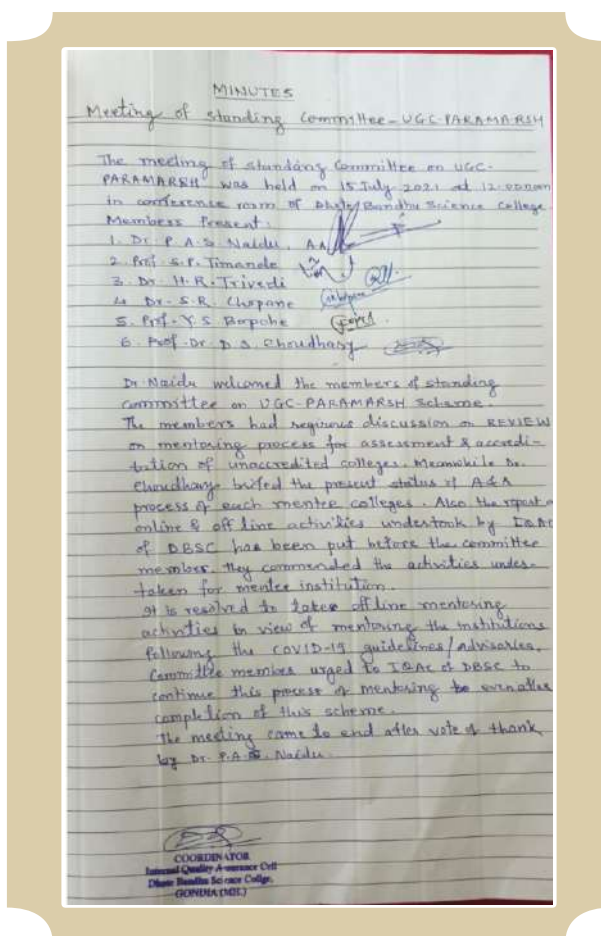 MINUTES
Meeting of standing Committee - UGC-PARAMARSH
The meeting of standing Committee on UGC-
PARAMARSH was held on 15 July 2021 at 12.00noon
in conference room of Dhote Bandhu Science College
Members Present:
1. Dr. P. A. S. Naidu,
2. Prof. S. P. Timande
3. Dr. H. R. Trivedi
4. Dr. S. R. Chopane
5. Prof. Y. S. Bopche
6. Prof. Dr. D. S. Choudhary
Dr. Naidu welcomed the members of standing
committee on UGC-PARAMARSH Scheme.
The members had regirous discussion on REVIEW
on mentoring process for assessment & accredi-
tation of unaccredited colleges. Meanwhile Dr.
Choudhary briefed the present status of A&A
process of each mentee colleges. Also the report o
online & off line activities undertook by IQAC
of DBSC has been put before the committee
member. they commended the activities under-
taken for mentee institution.
It is resolved to takee off line mentoring
activities in view of mentoring the institutions
following the COVID-19 guidelines/advisories.
Committee member urged to IQAC of DBSC to
continue this process of mentoring be even after
completion of this scheme.
The meeting came to end after vote of thank
by Dr. P.A.S. Naidu.
COORDINATOR
Internal Quality Assurance Cell
Dhote Bandhu Science College,
GONDIA (MH.)